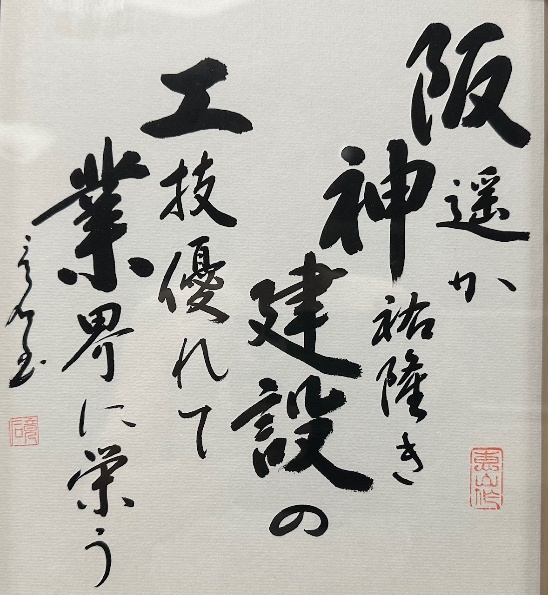 阪遥か
神祐隆き
建設の
工技優れて
業界に栄う